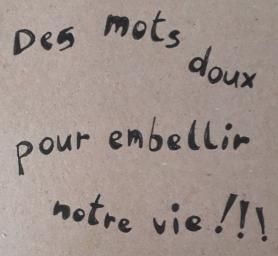 Des mots doux
pour embellir
notre vie!!!